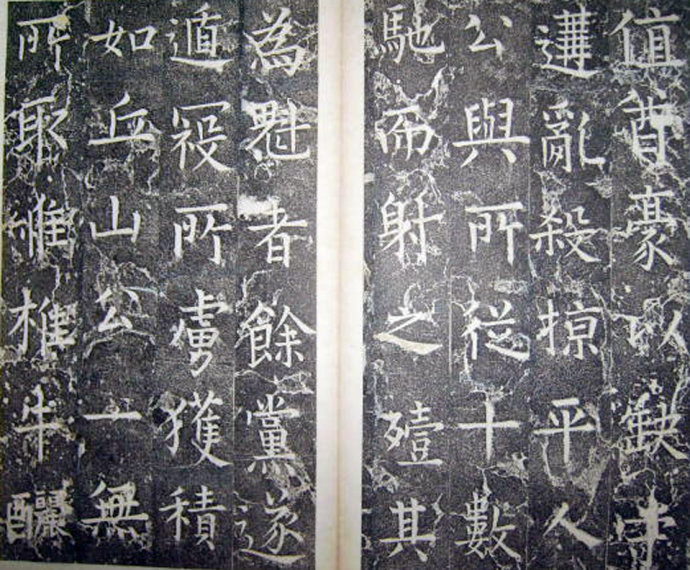 值酋豪以缺守
遘亂殺掠平人
公與所從十數
馳而射之殪其
為魁者餘黨遂
遁寇所虜獲積
如丘山公一無
所取惟椎牛釃